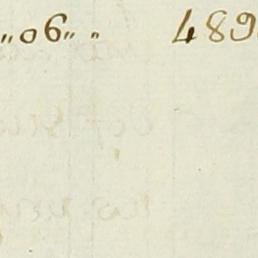 „06„ „ 489